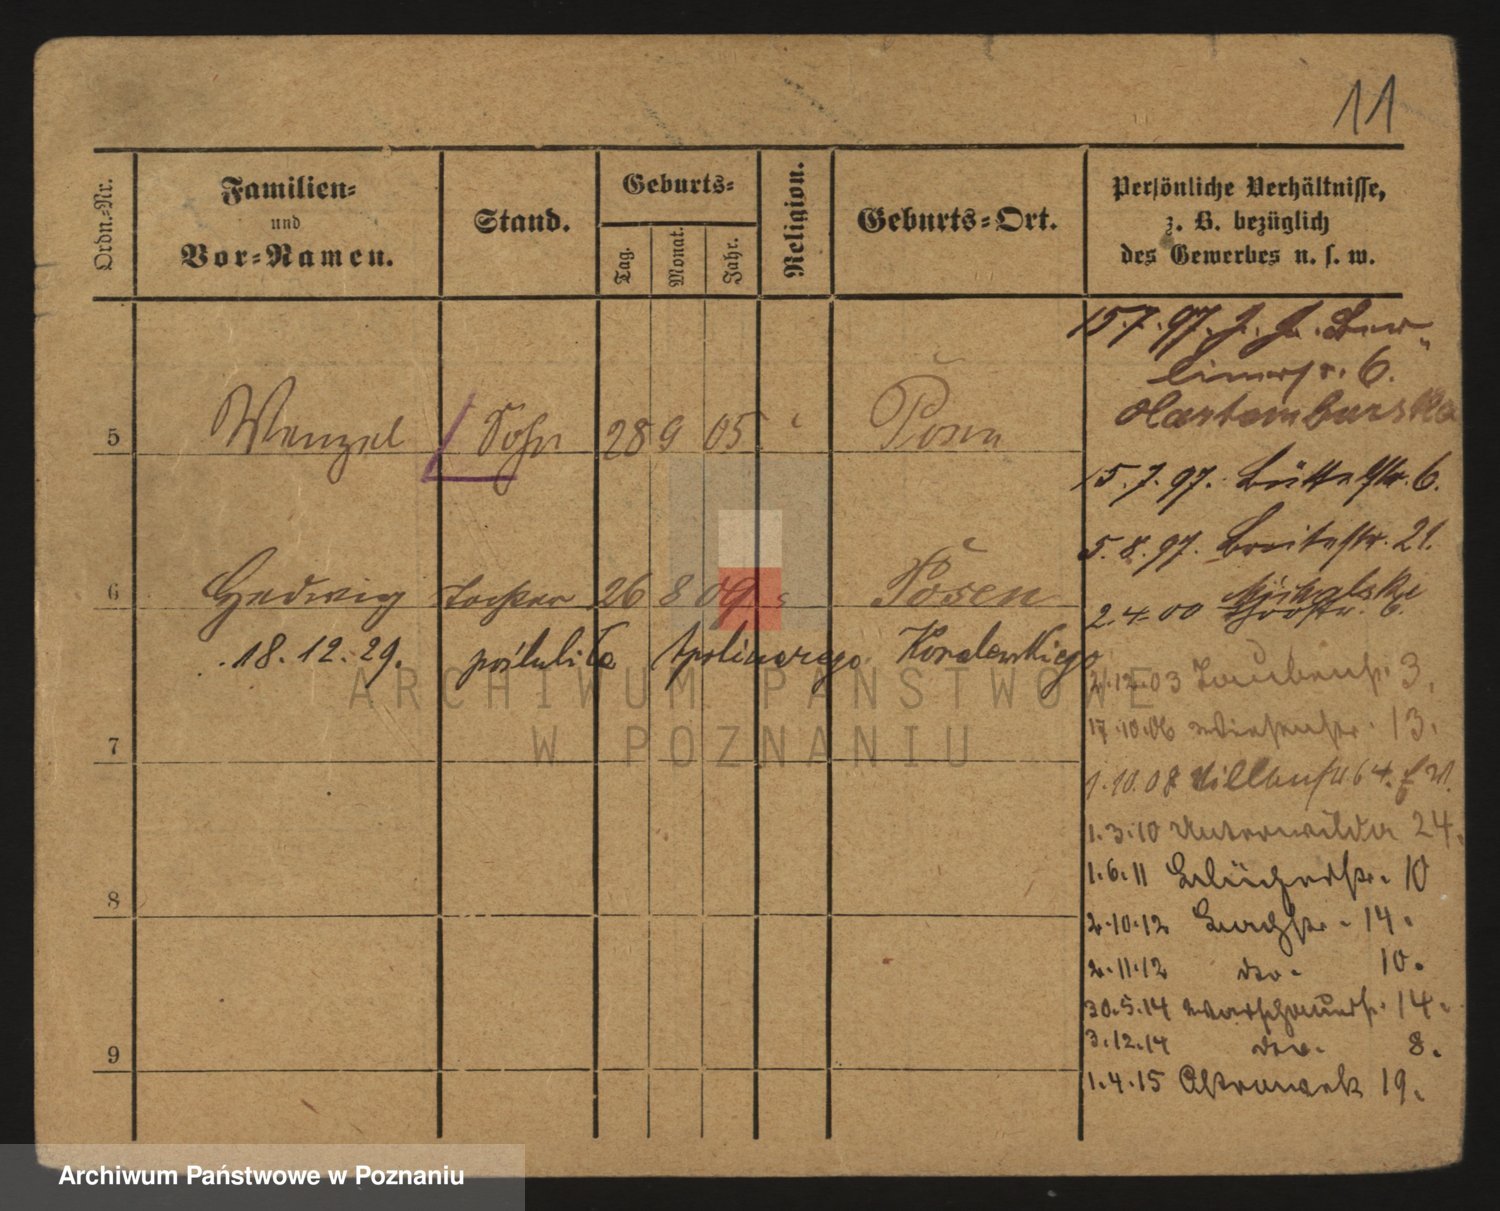 11
Ordn.-Nr.
Familien-
und
Vor-Namen.
Stand.
Geburts-
Tag.
Monat.
Jahr.
Religion.
Geburts-Ort.
Persönliche Verhältnisse,
z. B. bezüglich
des Gewerbes u. s. w.
15.7.97.
6.
5 Wenzel Sohn 28 9 05 Posen
15.7.97. Büttelstr. 6.
5.8.97. Breitestr. 21.
6 Hedwig Tochter 26 8 09 Posen
2.4.00 6.
18.12.29. poślubiła Apolinarego Kowalewskiego
2.12.03 Taubenstr. 3.
17.10.06 Wiesenstr. 13.
7
1.10.08
1.3.10 Unterwilda 24.
1.6.11 Blücherstr. 10
8
2.10.12 Bachstr. 14.
2.11.12 10.
30.5.14 Warschauerstr. 14.
3.12.14 8.
9
1.4.15 Ostrowek 19.
ARCHIWUM PAŃSTWOWE
W POZNANIU
Archiwum Państwowe w Poznaniu